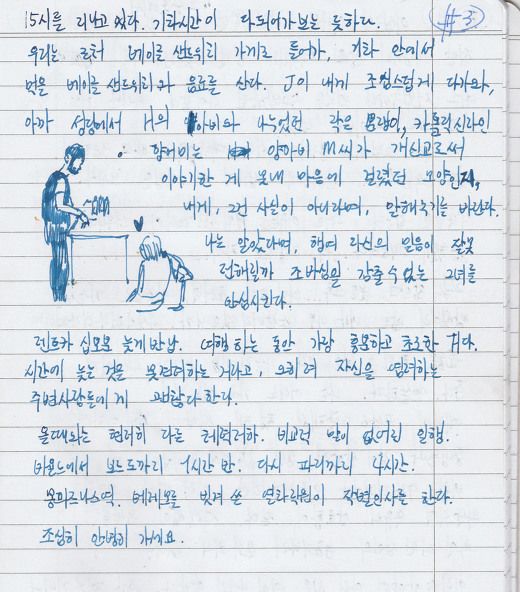 15시를 지나고 있다. 기차시간이 다 되어가보는 듯하다. #3
우리는 근처 베이글 샌드위치 가게로 들어가, 기차 안에서
먹을 베이글 샌드위치와 음료를 산다. J이 내게 조심스럽게 다가와,
아까 성당에서 H의 아비와 나누었던 작은 캄캄이, 카톨릭신자인
할머니는 양아비 M씨가 개신교로써
이야기한 게 못내 마음에 걸렸던 모양인지,
내게, 그건 사실이 아니라며, 이해해주기를 바란다.
나는 알았다며, 행여 자신의 믿음이 잘못
전해질까 조바심을 감출 수 없는 그녀를
안심시킨다.
렌트카 십오분 늦게 반납. 여행하는 동안 가장 흥분하고 초조한 J다.
시간에 늦는 것을 못견뎌하는 거라고, 오히려 자신을 염려하는
주변사람들에게 괜찮다 한다.
올때와는 현저히 다른 체력저하. 비교적 말이 없어진 일행.
바욘느에서 보르도까지 1시간 반. 다시 파리까지 4시간.
몽파르나스역. 베레모를 빗겨 쓴 열차직원이 작별인사를 한다.
조심히 안녕히 가세요.